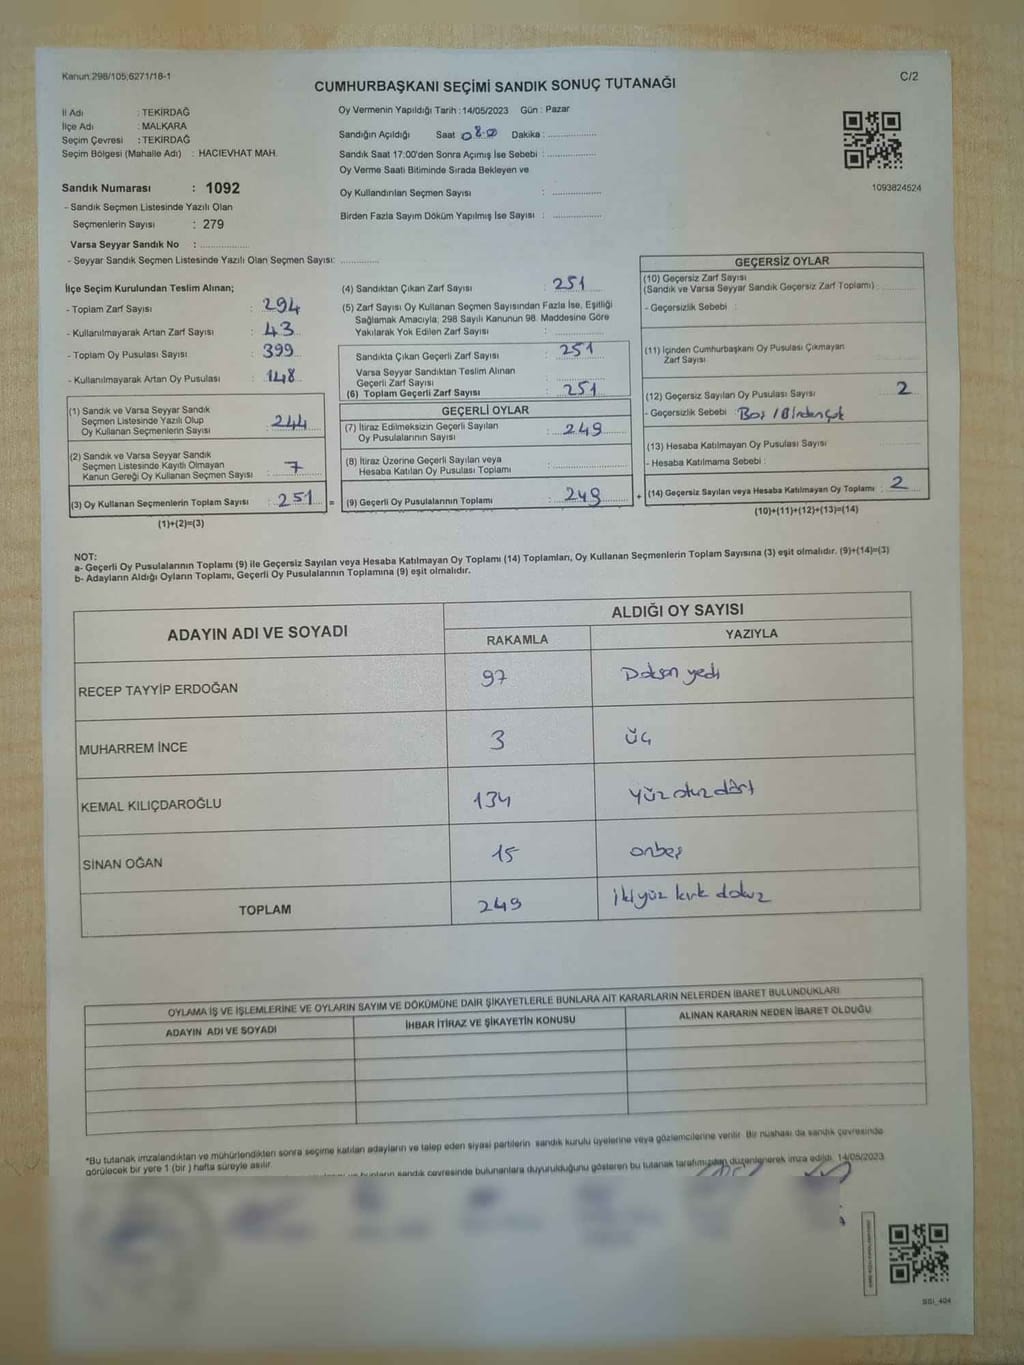 Kanun:298/105;6271/18-1
C/2
CUMHURBAŞKANI SEÇİMİ SANDIK SONUÇ TUTANAĞI
İl Adı : TEKİRDAĞ
İlçe Adı : MALKARA
Seçim Çevresi : TEKİRDAĞ
Seçim Bölgesi (Mahalle Adı) : HACIEVHAT MAH.
Sandık Numarası : 1092
- Sandık Seçmen Listesinde Yazılı Olan
Seçmenlerin Sayısı : 279
Varsa Seyyar Sandık No : ..................
- Seyyar Sandık Seçmen Listesinde Yazılı Olan Seçmen Sayısı: ..............
Oy Vermenin Yapıldığı Tarih : 14/05/2023 Gün : Pazar
Sandığın Açıldığı Saat 08.00 Dakika : ..................
Sandık Saat 17:00'den Sonra Açımış İse Sebebi : ..................
Oy Verme Saati Bitiminde Sırada Bekleyen ve
Oy Kullandırılan Seçmen Sayısı : ..................
Birden Fazla Sayım Döküm Yapılmış İse Sayısı : ..................
1093824524
İlçe Seçim Kurulundan Teslim Alınan;
- Toplam Zarf Sayısı : 294
- Kullanılmayarak Artan Zarf Sayısı : 43
- Toplam Oy Pusulası Sayısı : 399
- Kullanılmayarak Artan Oy Pusulası : 148
(1) Sandık ve Varsa Seyyar Sandık
Seçmen Listesinde Yazılı Olup
Oy Kullanan Seçmenlerin Sayısı : 244
(2) Sandık ve Varsa Seyyar Sandık
Seçmen Listesinde Kayıtlı Olmayan
Kanun Gereği Oy Kullanan Seçmen Sayısı : 7
(3) Oy Kullanan Seçmenlerin Toplam Sayısı : 251
(1)+(2)=(3)
(4) Sandıktan Çıkan Zarf Sayısı : 251
(5) Zarf Sayısı Oy Kullanan Seçmen Sayısından Fazla İse, Eşitliği
Sağlamak Amacıyla; 298 Sayılı Kanunun 98. Maddesine Göre
Yakılarak Yok Edilen Zarf Sayısı : ..................
Sandıkta Çıkan Geçerli Zarf Sayısı : 251
Varsa Seyyar Sandıktan Teslim Alınan
Geçerli Zarf Sayısı
(6) Toplam Geçerli Zarf Sayısı : 251
GEÇERLİ OYLAR
(7) İtiraz Edilmeksizin Geçerli Sayılan
Oy Pusulalarının Sayısı : 249
(8) İtiraz Üzerine Geçerli Sayılan veya
Hesaba Katılan Oy Pusulası Toplamı : ..................
= (9) Geçerli Oy Pusulalarının Toplamı : 249
GEÇERSİZ OYLAR
(10) Geçersiz Zarf Sayısı
(Sandık ve Varsa Seyyar Sandık Geçersiz Zarf Toplamı) :
- Geçersizlik Sebebi :
(11) İçinden Cumhurbaşkanı Oy Pusulası Çıkmayan
Zarf Sayısı
(12) Geçersiz Sayılan Oy Pusulası Sayısı : 2
- Geçersizlik Sebebi : Boş / Birden çok
(13) Hesaba Katılmayan Oy Pusulası Sayısı :
- Hesaba Katılmama Sebebi :
+ (14) Geçersiz Sayılan veya Hesaba Katılmayan Oy Toplamı : 2
(10)+(11)+(12)+(13)=(14)
NOT:
a- Geçerli Oy Pusulalarının Toplamı (9) ile Geçersiz Sayılan veya Hesaba Katılmayan Oy Toplamı (14) Toplamları, Oy Kullanan Seçmenlerin Toplam Sayısına (3) eşit olmalıdır. (9)+(14)=(3)
b- Adayların Aldığı Oyların Toplamı, Geçerli Oy Pusulalarının Toplamına (9) eşit olmalıdır.
ADAYIN ADI VE SOYADI
ALDIĞI OY SAYISI
RAKAMLA YAZIYLA
RECEP TAYYİP ERDOĞAN 97 Doksan yedi
MUHARREM İNCE 3 Üç
KEMAL KILIÇDAROĞLU 134 Yüz otuz dört
SİNAN OĞAN 15 onbeş
TOPLAM 249 İkiyüz kırk dokuz
OYLAMA İŞ VE İŞLEMLERİNE VE OYLARIN SAYIM VE DÖKÜMÜNE DAİR ŞİKAYETLERLE BUNLARA AİT KARARLARIN NELERDEN İBARET BULUNDUKLARI
ADAYIN ADI VE SOYADI İHBAR İTİRAZ VE ŞİKAYETİN KONUSU ALINAN KARARIN NEDEN İBARET OLDUĞU
*Bu tutanak imzalandıktan ve mühürlendikten sonra seçime katılan adayların ve talep eden siyasi partilerin sandık kurulu üyelerine veya gözlemcilerine verilir. Bir nüshası da sandık çevresinde
görülecek bir yere 1 (bir ) hafta süreyle asılır.
sandık çevresinde bulunanlara duyurulduğunu gösteren bu tutanak tarafımızdan düzenlenerek imza edildi. 14/05/2023